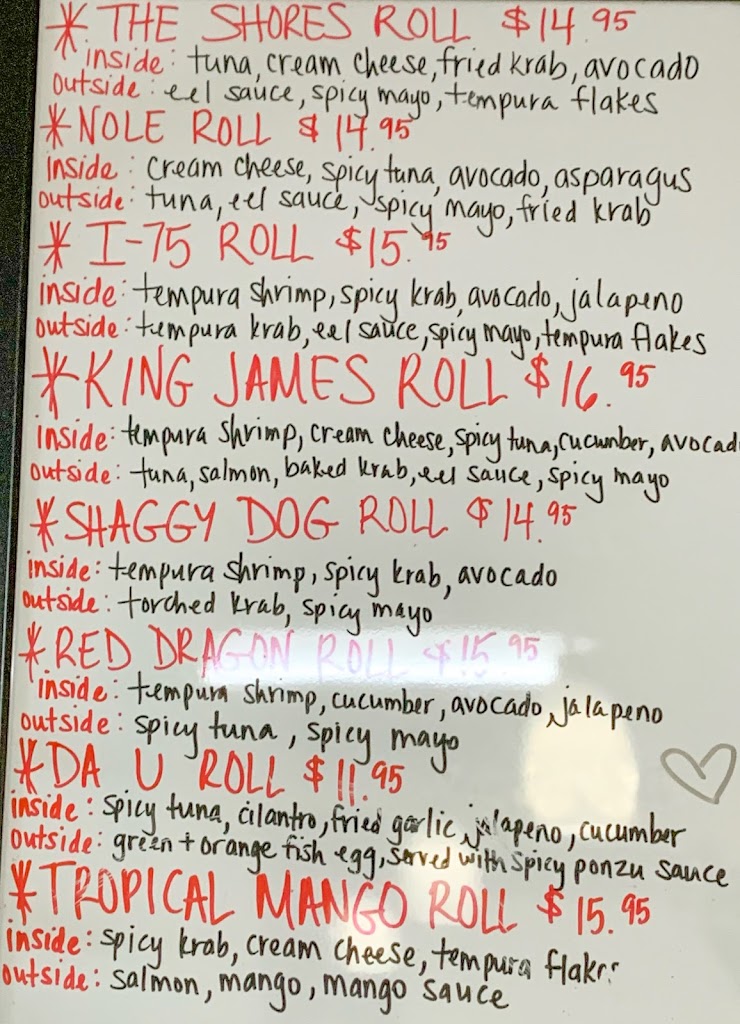 * THE SHORES ROLL $14.95
inside: tuna, cream cheese, fried krab, avocado
outside: eel sauce, spicy mayo, tempura flakes
* NOLE ROLL $14.95
inside: cream cheese, spicy tuna, avocado, asparagus
outside: tuna, eel sauce, spicy mayo, fried krab
* I-75 ROLL $15.95
inside: tempura shrimp, spicy krab, avocado, jalapeno
outside: tempura krab, eel sauce, spicy mayo, tempura flakes
* KING JAMES ROLL $16.95
inside: tempura shrimp, cream cheese, spicy tuna, cucumber, avocad
outside: tuna, salmon, baked krab, eel sauce, spicy mayo
* SHAGGY DOG ROLL $14.95
inside: tempura shrimp, spicy krab, avocado
outside: torched krab, spicy mayo
* RED DRAGON ROLL $15.95
inside: tempura shrimp, cucumber, avocado, jalapeno
outside: spicy tuna, spicy mayo
* DA U ROLL $11.95
inside: spicy tuna, cilantro, fried garlic, jalapeno, cucumber
outside: green + orange fish egg, served with spicy ponzu sauce
* TROPICAL MANGO ROLL $15.95
inside: spicy krab, cream cheese, tempura flakes
outside: salmon, mango, mango sauce